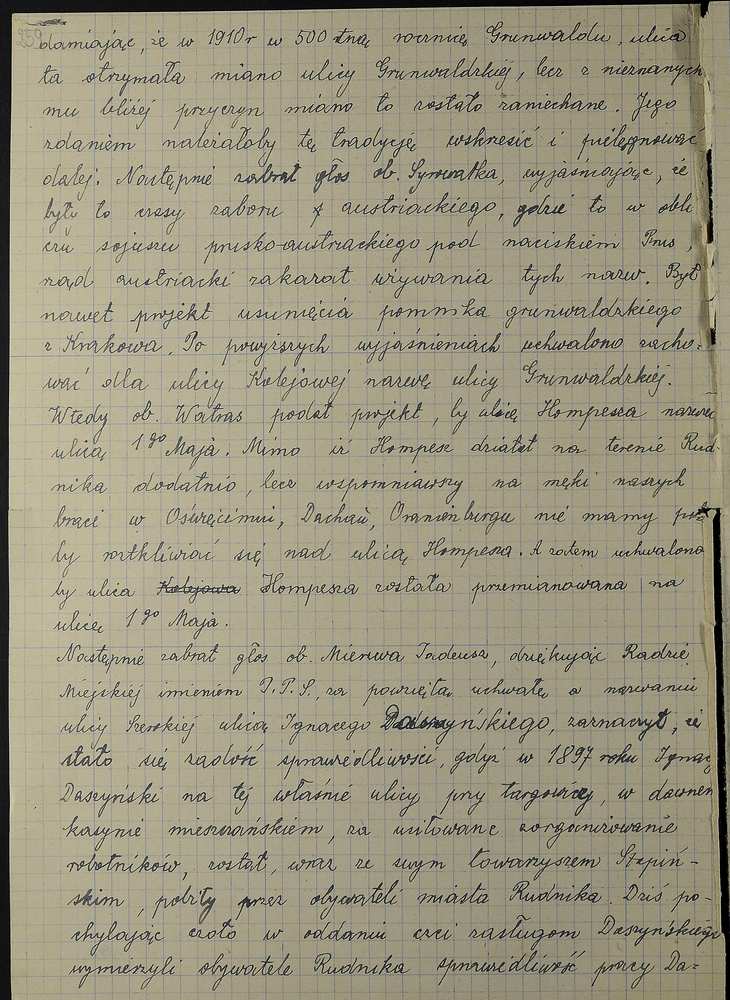 259
damiając, że w 1910 r w 500 tną rocznicę Grunwaldu, ulica
ta otrzymała miano ulicy Grunwaldzkiej, lecz z nieznanych
mu bliżej przyczyn miano to zostało zaniechane. Jego
zdaniem należałoby tę tradycję wskrzesić i pielęgnować
dalej. Następnie zabrał głos ob. Syrowatka, wyjaśniając, że
były to czasy zaboru austriackiego, gdzie to w obli
czu sojuszu prusko-austriackiego pod naciskiem Prus,
rząd austriacki zakazał używania tych nazw. Był
nawet projekt usunięcia pomnika grunwaldzkiego
z Krakowa. Po powyższych wyjaśnieniach uchwalono zacho-
wać dla ulicy Kolejowej nazwę ulicy Grunwaldzkiej.
Wtedy ob. Watras podał projekt, by ulicę Hompesza nazwać
ulicą 1 go Maja. Mimo iż Hompesz działał na terenie Rud-
nika dodatnio, lecz wspomniawszy na męki naszych
braci w Oświęcimiu, Dachau, Oranienburgu nie mamy
by roztkliwiać się nad ulicą Hompesza. A zatem uchwalono
by ulica Kolejowa Hompesza została przemianowana na
ulicę 1 go Maja.
Następnie zabrał głos ob. Mierzwa Tadeusz, dziękując Radzie
Miejskiej imieniem P.P.S., za powziętą uchwałę o nazwaniu
ulicy Szerokiej ulicą Ignacego Daszyńskiego, zaznaczył, że
stało się zadość sprawiedliwości, gdyż w 1897 roku Ignacy
Daszyński na tej właśnie ulicy przy targowicy, w dawnem
kasynie mieszczańskiem, za usiłowane zorganizowanie
robotników, został, wraz ze swym towarzyszem Stępiń-
skim, pobity przez obywateli miasta Rudnika. Dziś po-
chylając czoło w oddaniu czci zasługom Daszyńskiego
wymierzyli obywatele Rudnika sprawiedliwość pracy Da-